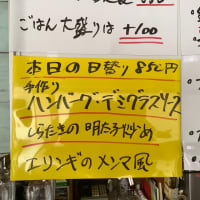 ごはん大盛りは +100
本日の日替り 850円
手作り
ハンバーグ・デミグラスソース
しらたきの明太子炒め
エリンギのメンマ風